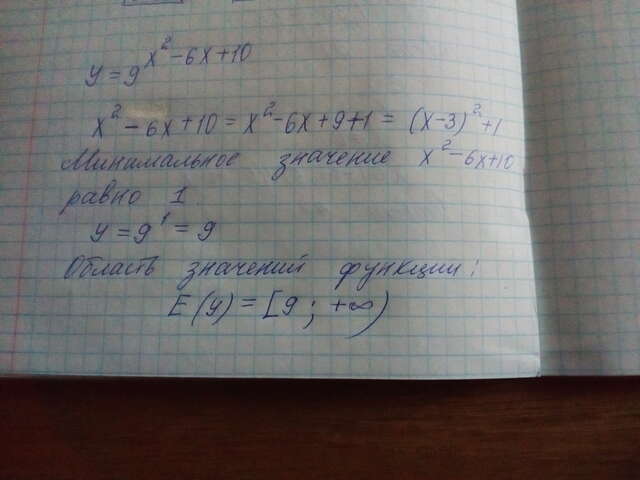 y = 9^{x^2 - 6x + 10}
x^2 - 6x + 10 = x^2 - 6x + 9 + 1 = (x-3)^2 + 1
Минимальное значение x^2 - 6x + 10
равно 1.
y = 9^1 = 9
Область значений функции:
E(y) = [9; +∞)